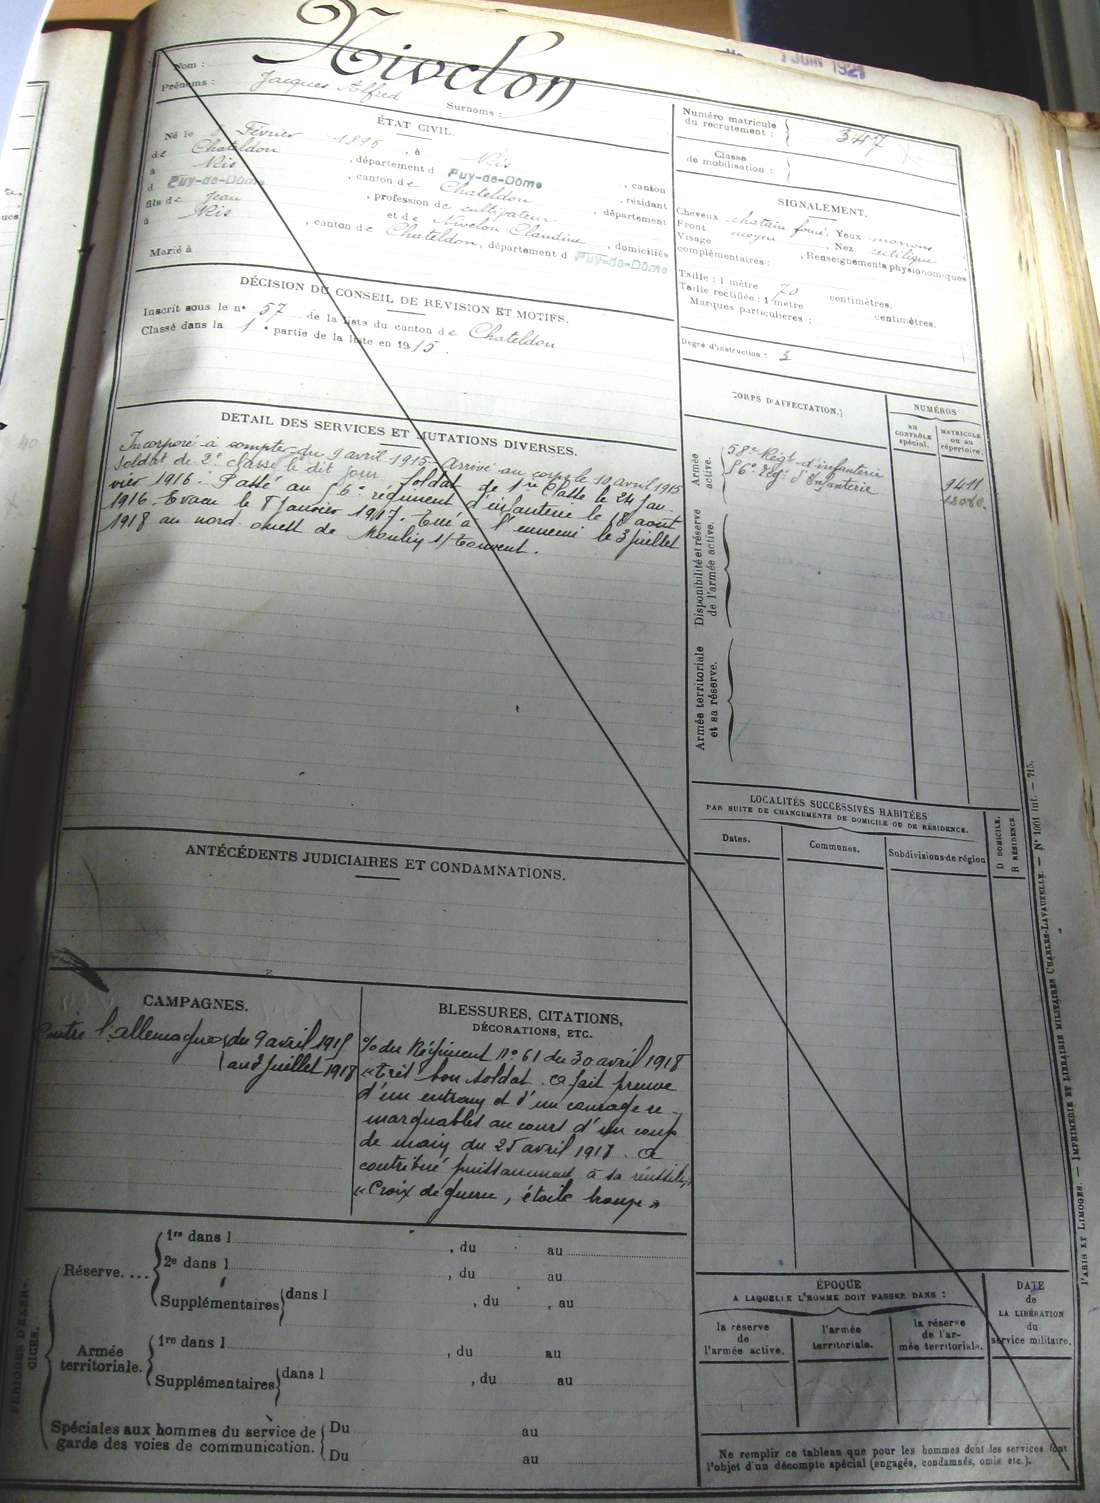 1 JUIN 1921
Nom : Nivelon
Prénoms : Jacques Alfred Surnoms :
ÉTAT CIVIL.
Né le Février 1896, à Ris
de Chateldon, département d Puy-de-Dôme, canton
à Ris, canton de Chateldon, résidant
d Puy-de-Dôme, profession de cultivateur, département
fils de Jean et de Nivelon Claudine, domiciliés
à Ris, canton de Chateldon, département d Puy-de-Dôme
Marié à
Numéro matricule du recrutement : 347
Classe de mobilisation :
SIGNALEMENT.
Cheveux chatain foncé. Yeux marrons
Front moyen, Nez rectiligne
Visage, Renseignements physionomiques
complémentaires :
Taille : 1 mètre 70 centimètres.
Taille rectifiée : 1 mètre centimètres.
Marques particulières :
Degré d'instruction : 3
DÉCISION DU CONSEIL DE REVISION ET MOTIFS.
Inscrit sous le n° 57 de la liste du canton de Chateldon
Classé dans la 1e partie de la liste en 1915.
DETAIL DES SERVICES ET MUTATIONS DIVERSES.
Incorporé à compter du 9 avril 1915. Arrivé au corps le 10 avril 1915
soldat de 2e classe le dit jour. Soldat de 1re Classe le 24 Jan-
vier 1916. Passé au 56e régiment d'infanterie le 18 août
1916. Evacué le 8 Janvier 1917. Tué à l'ennemi le 3 juillet
1918 au nord ouest de Moulin s/ Touvent.
CORPS D'AFFECTATION.
NUMÉROS
AU CONTRÔLE spécial.
MATRICULE OU AU répertoire.
Armée active.
58e Régt d'infanterie 9411
56e Régt d'Infanterie
Disponibilité et réserve de l'armée active.
Armée territoriale et sa réserve.
LOCALITÉS SUCCESSIVES HABITÉES
PAR SUITE DE CHANGEMENTS DE DOMICILE OU DE RÉSIDENCE.
Dates.
Communes.
Subdivisions de région
D DOMICILE.
R RÉSIDENCE.
ANTÉCÉDENTS JUDICIAIRES ET CONDAMNATIONS.
CAMPAGNES.
Contre l'allemagne du 9 avril 1915
au 3 juillet 1918
BLESSURES, CITATIONS,
DÉCORATIONS, ETC.
% du Régiment N° 61 du 30 avril 1918
« Très bon soldat. a fait preuve
d'un entrain et d'un courage re-
marquables au cours d'un coup
de main du 25 avril 1918. a
contribué puissamment à sa réussite »
« Croix de guerre, étoile bronze »
PÉRIODES D'EXERCICES.
Réserve....
1re dans l , du au
2e dans l , du au
Supplémentaires dans l , du , au
Armée territoriale.
1re dans l , du au
Supplémentaires dans l , du au
Spéciales aux hommes du service de
garde des voies de communication.
Du au
Du au
ÉPOQUE
A LAQUELLE L'HOMME DOIT PASSER DANS :
la réserve de l'armée active.
l'armée territoriale.
la réserve de l'armée territoriale.
DATE
de
LA LIBÉRATION
du
service militaire.
Ne remplir ce tableau que pour les hommes dont les services font
l'objet d'un décompte spécial (engagés, condamnés, omis etc.).
PARIS ET LIMOGES. — IMPRIMERIE ET LIBRAIRIE MILITAIRES CHARLES-LAVAUZELLE. — N° 1001 int. — 715.